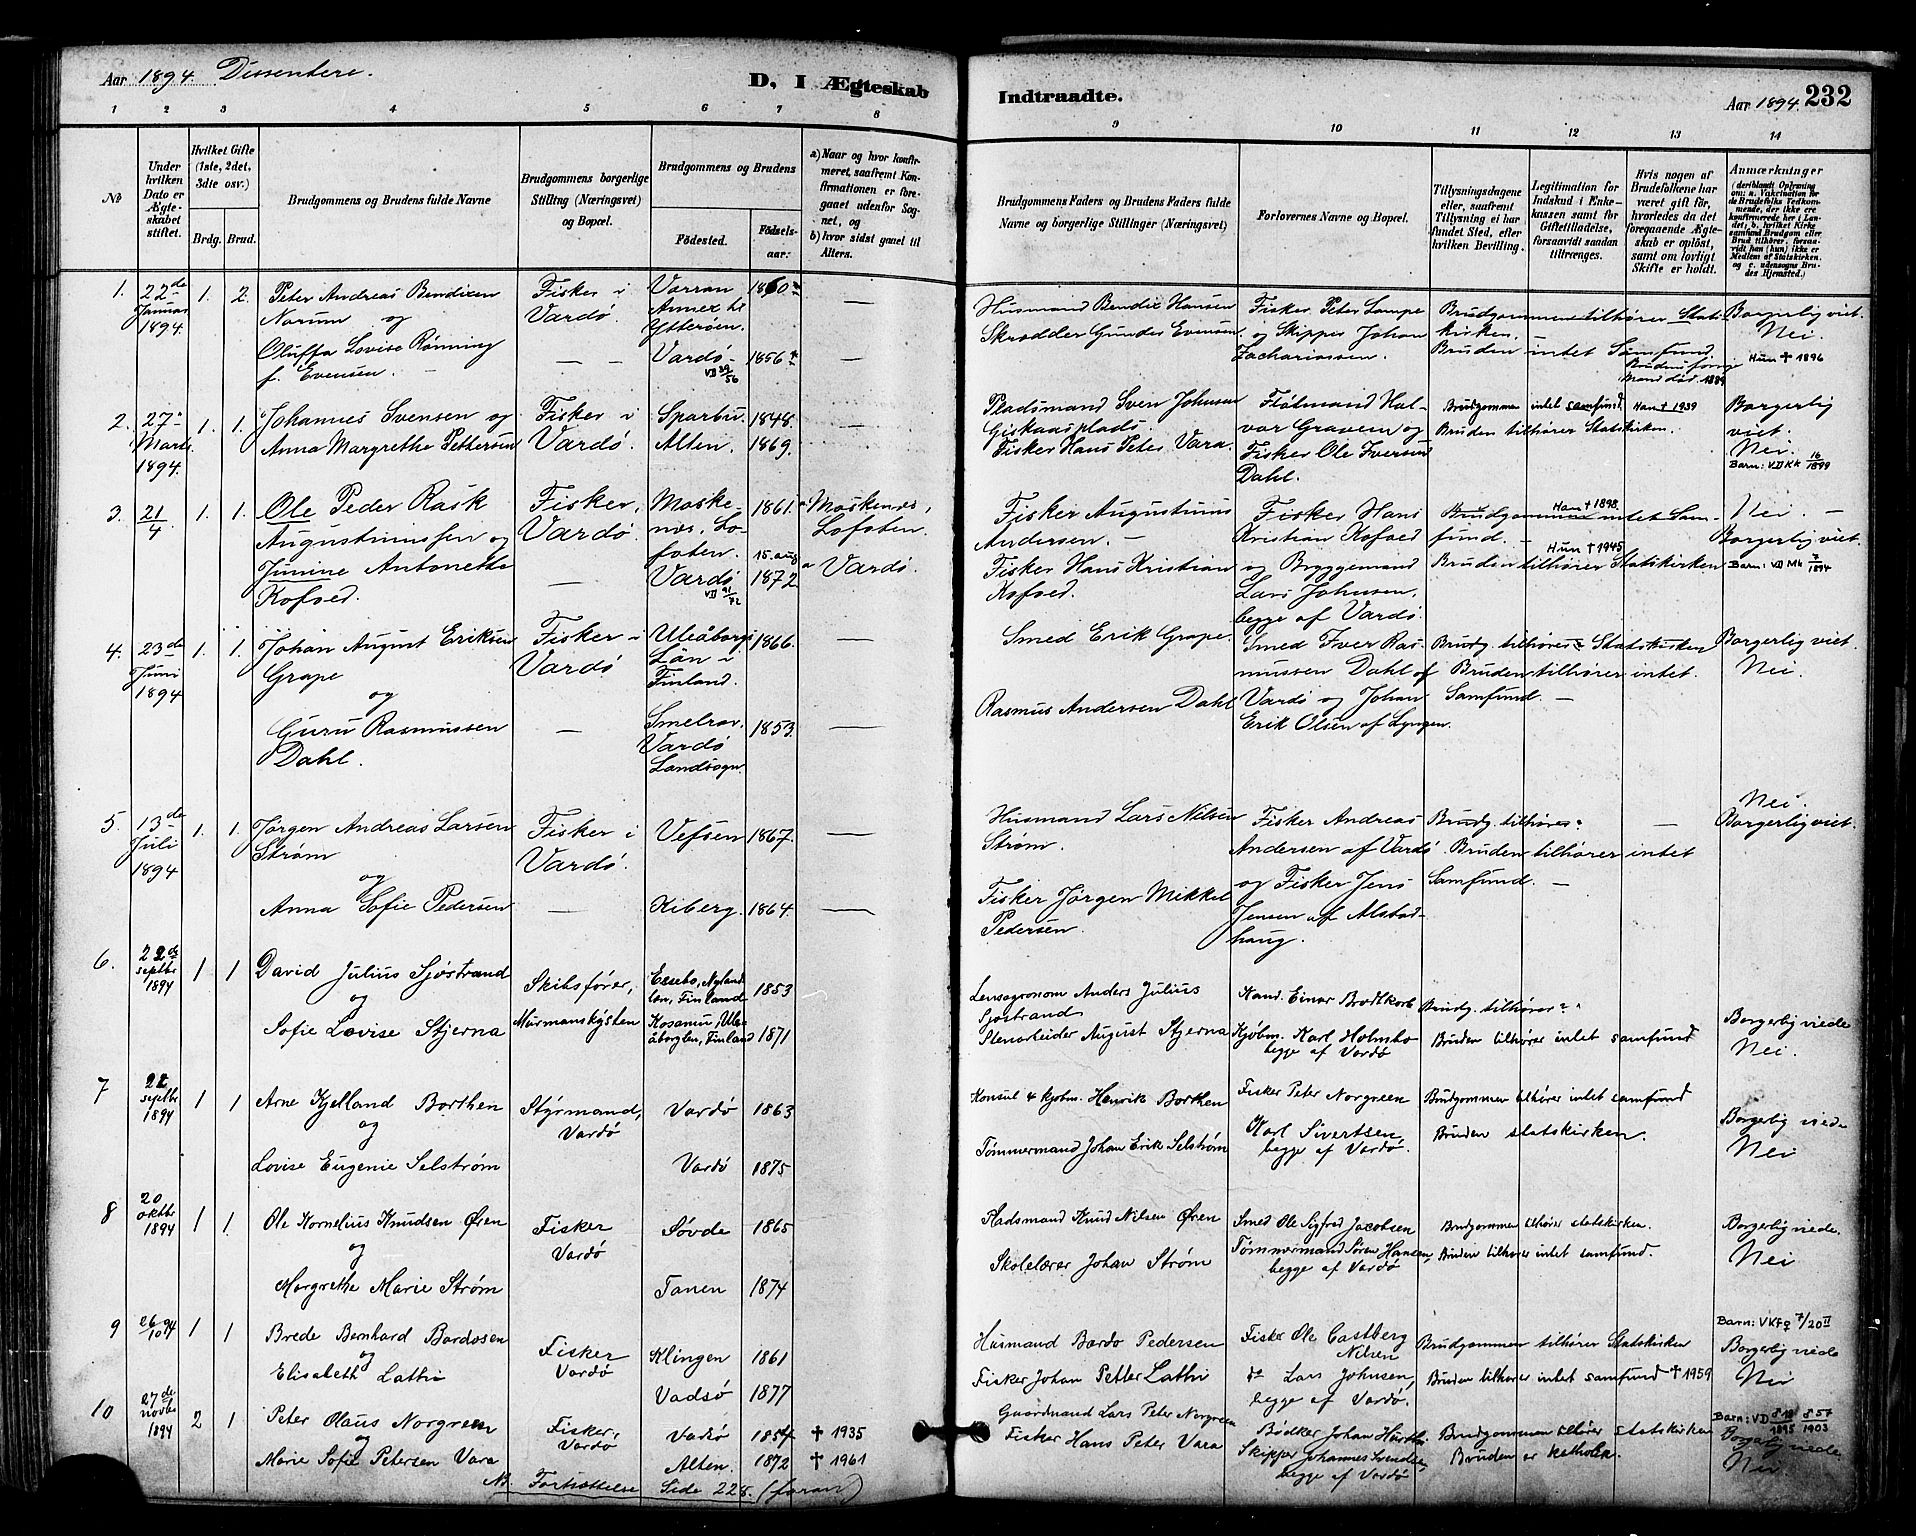 Aar 1894. Dissentere.
D, I Ægteskab
Indtraadte.
Aar 1894. 232
1 2 3 4 5 6 7 8 9 10 11 12 13 14
№
Under hvilken Dato er Ægteskabet stiftet.
Hvilket Gifte (1ste, 2det, 3die osv.)
Brdg. Brud.
Brudgommens og Brudens fulde Navne
Brudgommens borgerlige Stilling (Næringsvei) og Bopæl.
Brudgommens og Brudens
Fødested. Fødselsaar:
a) Naar og hvor konfirmeret, saafremt Konfirmationen er foregaaet udenfor Sognet, og
b) hvor sidst gaaet til Alters.
Brudgommens Faders og Brudens Faders fulde Navne og borgerlige Stillinger (Næringsvei)
Forlovernes Navne og Bopæl.
Tillysningsdagene eller, saafremt Tillysning ei har fundet Sted, efter hvilken Bevilling.
Legitimation for Indskud i Enkekassen samt for Giftetilladelse, forsaavidt saadan tiltrænges.
Hvis nogen af Brudefolkene har været gift før, hvorledes da det foregaaende Ægteskab er opløst, samt om lovligt Skifte er holdt.
Anmærkninger
(deriblandt Oplysning om: a. Vakcination for de Brudefolks Vedkommende, der ikke ere konfirmerede her i Landet; b. hvilket Kirkesamfund Brudgom eller Brud tilhører, forsaavidt han (hun) ikke er Medlem af Statskirken, og c. udensogns Brudes Hjemsted.)
1. 22de Januar 1894. 1. 2.
Peter Andreas Bendixen
Narum og
Oluffa Lovise Rønning
f. Evensen.
Fisker i
Vardø.
Værran
Annex til
Ytterøen. 1860
Vardø 1856
VD 39/56
Husmand Bendix Hansen
Skrædder Gunder Evensen
Fisker Peter Lampe
og Skipper Johan
Zachariassen.
Brudgommen tilhører Statskirken.
Bruden intet Samfund.
Brudens forrige
Mand død 1889
Borgerlig viet.
Nei.
Hun † 1896
2. 27 Marts 1894. 1. 1.
Johannes Svensen og
Anna Margrethe Pettersen
Fisker i
Vardø.
Sparbu. 1848.
Alten. 1869.
Pladsmand Sven Johnsen
Giskaasplads.
Fisker Hans Peter Vara.
Fløtmand Halvor Graven og
Fisker Ole Iversen
Dahl.
Brudgommen intet samfund.
Han † 1939
Bruden tilhører Statskirken.
Borgerlig
viet.
Nei.
Barn: VD Kk 16/1899
3. 21/4 1. 1.
Ole Peder Rask
Augustinussen og
Junine Antonette
Kofoed.
Fisker,
Vardø.
Moskenes, Lofoten. 1861.
15. aug
Vardø 1872
VD 91/72
a Moskenes,
Lofoten
a Vardø.
Fisker Augustinus
Andersen.
Fisker Hans Kristian
Kofoed.
Fisker Hans
Kristian Kofoed
og Bryggemand
Lars Johnsen,
begge af Vardø.
Han † 1898.
Brudgommen intet Samfund.
Hun † 1945
Bruden tilhører Statskirken
Nei.
Borgerlig viet.
Barn: VD Mk 7/1894
4. 23de Juni 1894 1. 1.
Johan August Eriksen
Grape
og
Guru Rasmussen
Dahl.
Fisker i
Vardø
Uleåborgs
Län i
Finland. 1866.
Smelror,
Vardø
Landsogn. 1853.
Smed Erik Grape.
Rasmus Andersen Dahl
Smed Iver Rasmussen Dahl af
Vardø og Johan
Erik Olsen af Lyngen.
Brudg. tilhører Statskirken
Bruden tilhører intet.
Samfund.
Borgerlig viet.
Nei.
5. 13de Juli 1894 1. 1.
Jørgen Andreas Larsen
Strøm
og
Anna Sofie Pedersen
Fisker i
Vardø.
Vefsen 1867.
Kiberg. 1864.
Husmand Lars Nilsen
Strøm.
Fisker Jørgen Mikkel
Pedersen.
Fisker Andreas
Andersen af Vardø
og Fisker Jens
Jensen af Alstadhaug.
Brudg. tilhører "
Bruden tilhører intet
Samfund.
Nei.
Borgerlig viet.
6. 22de septbr 1894 1 1
David Julius Sjöstrand
og
Sofie Lovise Stjerna
Skibsfører,
Murmanskysten
Essebo, Nyland
len, Finland 1853
Kosamu, Uleåborglen, Finland 1871
Lensagronom Anders Julius
Sjöstrand
Stenarbeider August Stjerna
Kand. Einar Brodtkorb
Kjøbm. Karl Holmbo
begge af Vardø
Brudg. tilhører "
Bruden tilhører intet samfund
Borgerlig viede
Nei.
7 22 septbr 1894 1 1
Arne Kjelland Borthen
og
Lovise Eugenie Selstrøm
Styrmand,
Vardø
Vardø 1863
Vardø 1875
Konsul & kjøbm. Henrik Borthen
Tømmermand Johan Erik Selstrøm
Fisker Peter Norgreen
Karl Sivertsen
begge af Vardø.
Brudgommen tilhører intet samfund
Bruden statskirken.
Borgerlig viede
Nei
8 20 oktbr 1894 1 1.
Ole Kornelius Knudsen Øren
og
Margrethe Marie Strøm
Fisker
Vardø
Søvde 1865
Tanen 1874
Pladsmand Knud Nilsen Øren
Skolelærer Johan Strøm
Smed Ole Sigfred Jacobsen
Tømmermand Søren Hansen,
begge af Vardø
Brudgommen tilhører statskirken.
Bruden tilhører intet samfund.
Borgerlig viede.
Nei
9 26/10 94 1 1
Brede Bernhard Bardosen
og
Elisabeth Latthi
Fisker
Vardø
Klingen 1861
Vadsø 1877
Husmand Bardo Pedersen
Fisker Johan Petter Latthi
Fisker Ole Castberg
Nilsen
do Lars Johnsen,
begge af Vardø.
Brudgommen tilhører Statskirken
Bruden tilhører intet samfund † 1959
Barn: VKFø 7/20 II
Borgerlig viede
Nei
10 27de novbr 1894 2 1
Peter Olaus Norgreen
og
Marie Sofie Petersen Vara
Fisker,
Vardø
Vadsø 1854 † 1935
Alten. 1872 † 1961
Gaardmand Lars Peter Norgreen
Fisker Hans Peter Vara
Bødker Johan
Skipper Johannes Svendsen
begge af Vardø
Brudgommen tilhører statskirken
Bruden er katholik.
Barn: VD 1895 857/1903
Borgerlig viede
Nei
NB. Fortsættelse Side 228. (foran)